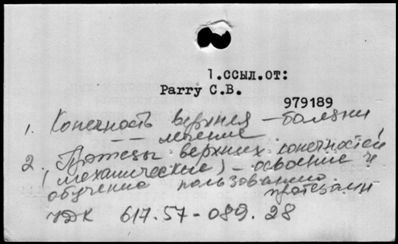 1.ССЫЛ.ОТ:
Parry C.B.
979189
1. Конечность верхняя – болезни
– лечение
2. Протезы верхних конечностей
(механические) – освоение и
обучение пользованию
протезами
УДК 617.57-089.28